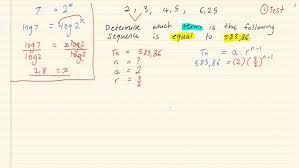 7 = 2^x
log7 = log2^x
log7 = xlog2
log2 log2
2.8 = x
2, 3, 4,5, 6,25
① Test
Determine which term is the following
sequence is equal to 583,86
Tn = 583,86
n = ?
a = 2
r = 3/2
Tn = a.r^n-1
583,86 = (2)(3/2)^n-1